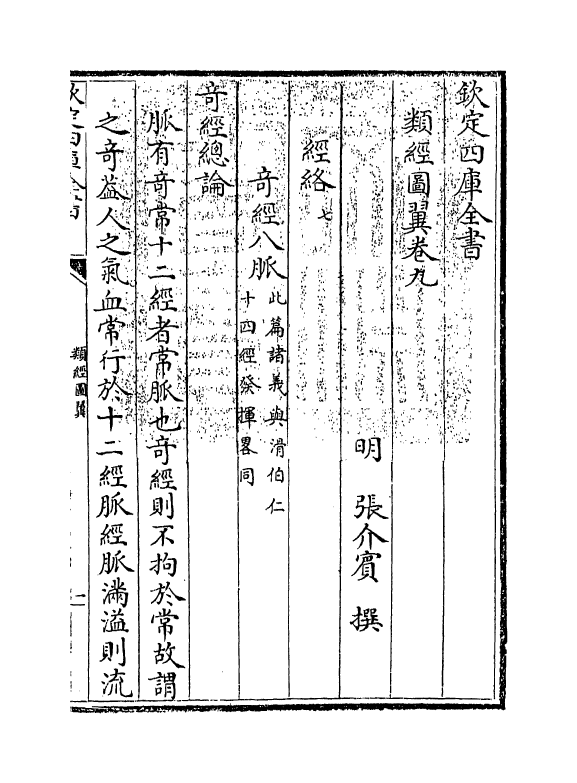 欽定四庫全書
類經圖翼卷九
明 張介賓 撰
經絡七
奇經八脈
此篇諸義與滑伯仁
十四經發揮畧同
奇經總論
脈有奇常十二經者常脈也奇經則不拘於常故謂
之奇葢人之氣血常行於十二經脈經脈滿溢則流
欽定四庫全書
類經圖翼